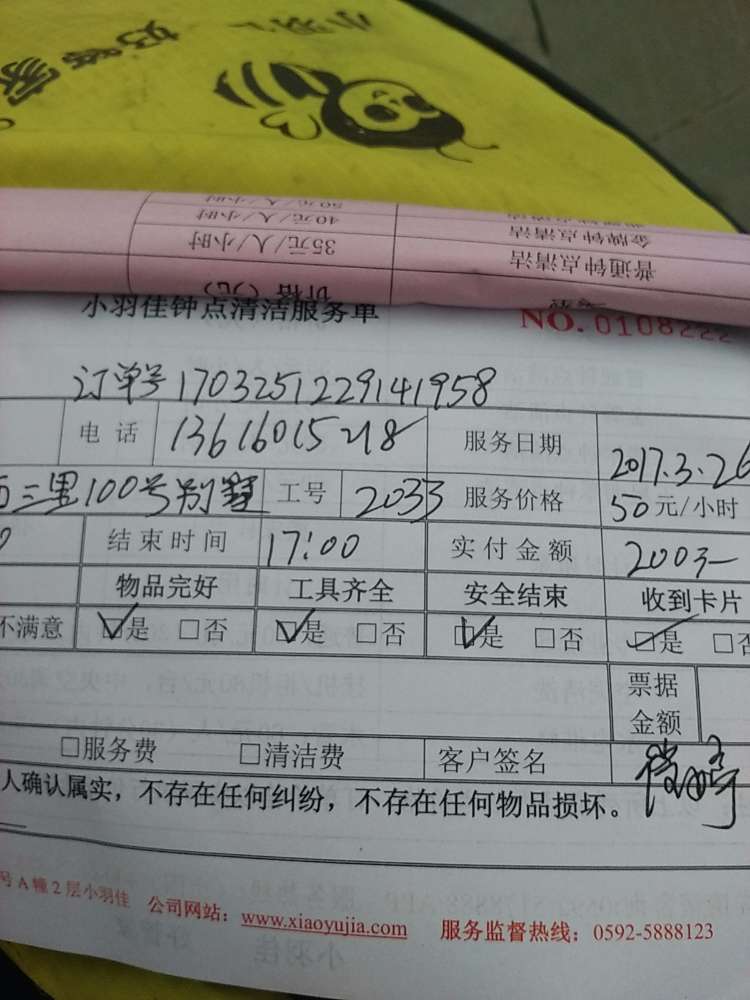 小羽
好管家
50元/人/小时
金牌钟点清洁 40元/人/小时
普通钟点清洁 35元/人/小时
价格(元)
小羽佳钟点清洁服务单 NO. 0108222
订单号1703251229141958
电话 13616015218 服务日期 2017.3.26
西三里100号别墅 工号 2033 服务价格 50元/小时
结束时间 17:00 实付金额
物品完好 工具齐全 安全结束 收到卡片
不满意 ☑是 □否 ☑是 □否 ☑是 □否 ☑是 □否
票据
金额
□服务费 □清洁费 客户签名
人确认属实，不存在任何纠纷，不存在任何物品损坏。
号A幢2层小羽佳 公司网站：www.xiaoyujia.com 服务监督热线：0592-5888123